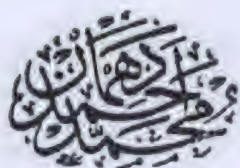 محمد أحمد دهمان